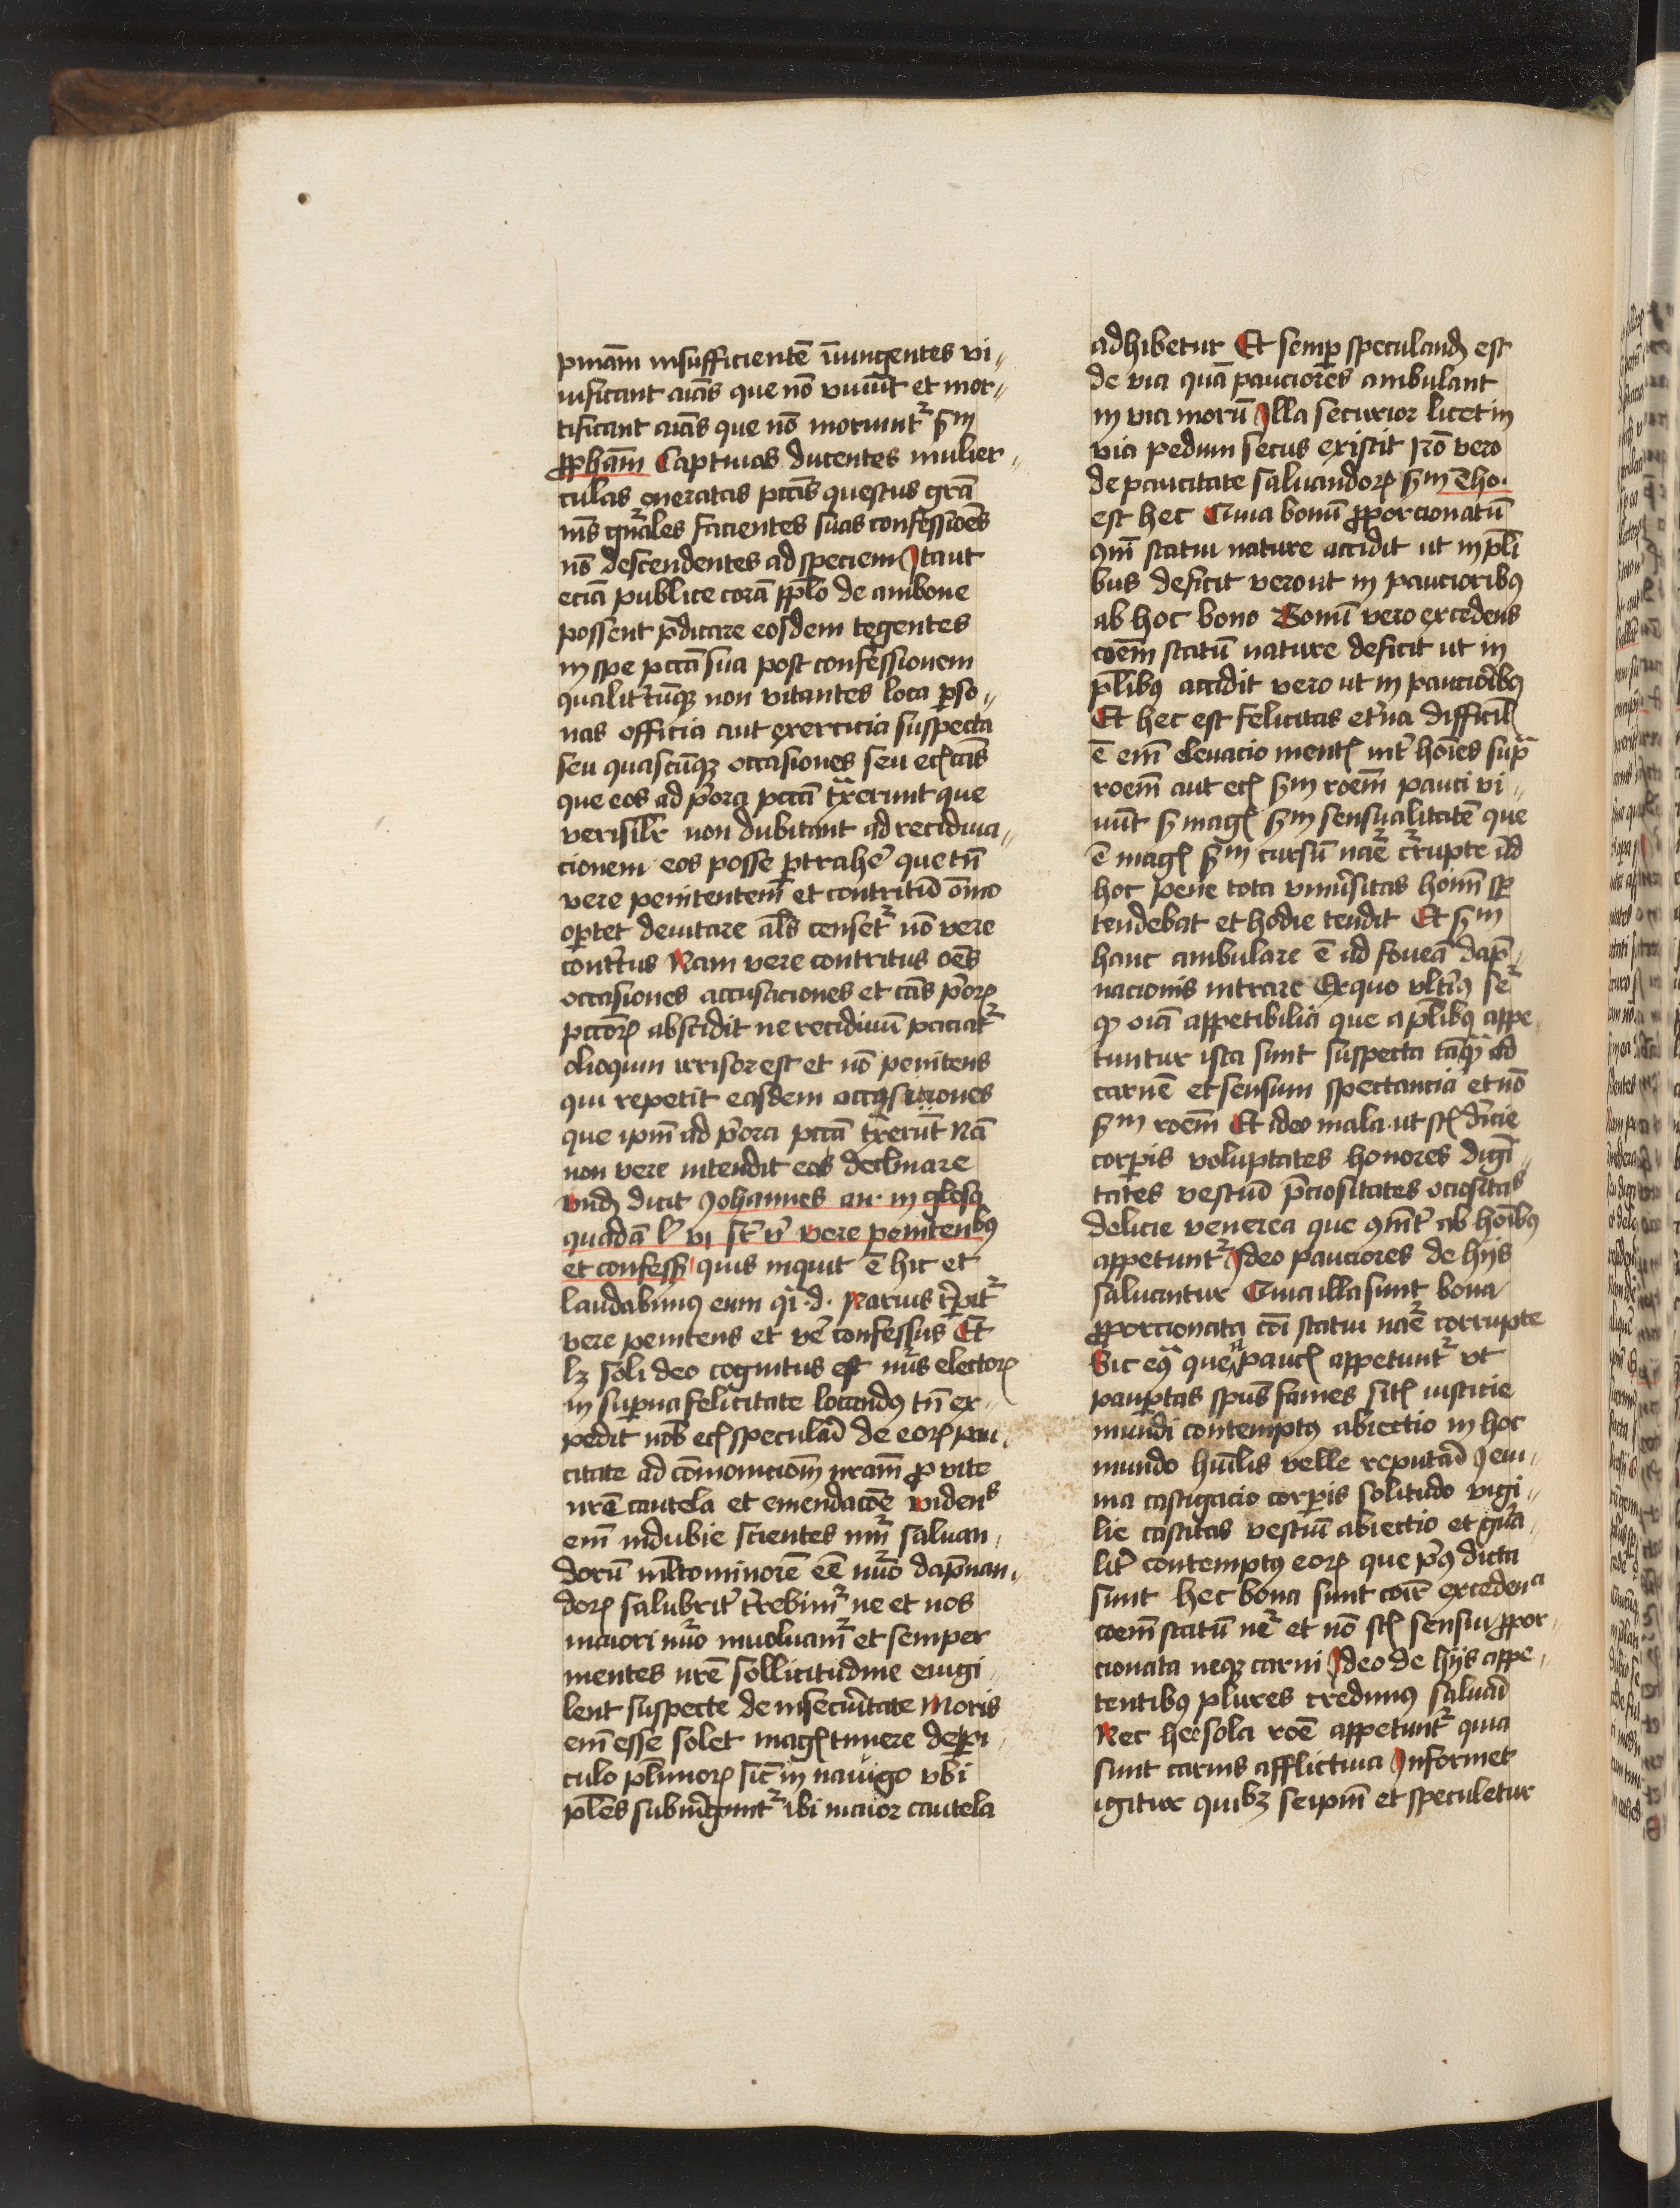 pniam insufficientē iniungentes vi-
uificant aīas que nō viuūt et mor-
tificant aīas que nō moriunt᷑ scḋm
ꝓphetam Captiuas ducentes mulier-
culas oneratas pccīs questus grā
nīs gn̄ales facientes suas confessiōes
nō descendentes ad speciem Itaut
eciā publice corā pplo de ambone
possent p̄dicare eosdem tegentes
in spe pccā sua post confessionem
qualit̄cūqꝫ non vitantes loca ꝑso-
nas officia aut exercicia suspecta
seu quascūqꝫ occasiones seu ecꝭ cās
que eos ad p̄ora pccā t̄xerunt que
verisilr̄ non dubitant ad recidiua-
cionem eos posse ꝑtrahe᷑ que tn̄
vere penitentem et contritū oīno
oꝑtet deuitare als̄ censet᷑ nō vere
contr̄tus Nam vere contritus oēs
occasiones accusaciones et cās p̄orꝝ
pccorꝝ abscidit ne recidiuū paciat᷑
alioquin irrisor est et nō penitens
qui repetit easdem occasiones
que ipm̄ ad p̄ora pccā t̄xerūt Nā
non vere intendit eas declinare
vnd̄ dicit Johannes an· in glosa
quadā l' vi st' v' vere penitentibꝰ
et confess̄ quis inquit ē hic et
laudabimꝰ eum q̄i ·d· Rarius r̄pit᷑
vere penitens et ve᷑ confessus Et
lꝫ soli deo cognitus est nūs electorꝝ
in suꝑna felicitate locandꝰ tn̄ ex-
pedit nob̄ ecꝭ speculari de eorꝝ pau-
citate ad cōmoniciōm nr̄am ꝓ vite
nr̄e cautela et emendacōe vident᷑
em̄ indubie scientes nūm saluan-
dorū mltominorē eē nūo dāpnan-
dorꝝ salubrit᷑ t̄rebim᷑ ne et nos
maiori nūo inuoluam᷑ et semper
mentes nr̄e sollicitudine euigi-
lent suspecte de insecūritate Moris
em̄ esse solet magꝭ timere de ꝑi-
culo plīmorꝝ sic̄ in nauigo vbi
ples̄ submergunt᷑ ibi maior cautela
adhibetur Et semꝑ speculand̄ est
de via quā pauciores ambulant
in via morū Illa securior licet in
via pedum secus existit Rō vero
de paucitate saluandorꝝ scḋm tho·
est hec Quia bonū ꝓporcionatū
9m̄i statui nature accidit ut in pl̄i
bus deficit vero ut in paucioribꝰ
ab hoc bono Bonū vero excedens
coem̄ statū nature deficit ut in
pl̄ibꝰ accidit vero ut in pauciōribꝰ
Et hec est felicitas et'na difficil'
ē em̄ eleuacio mentꝭ int᷑ hoīes sup̄
roem̄ aut ecꝭ scḋm roem̄ pauci vi-
uūt sꝫ magꝭ scḋm sensualitatē que
ē magꝭ scḋm cursū nae᷑ c̄rupte ad
hoc pene tota vniūsitas hoīm sp̄
tendebat et hodie tendit Et scḋm
hanc ambulare ē ad foueā dāp-
nacionis intrare Exquo vlt̄iꝰ se᷑
qꝫ oīa appetibilia que a pl̄ibꝰ appe-
tuntur ista sunt suspecta tāqꝫ ad
carnē et sensum spectancia et nō
scḋm roem̄ Et ideo mala· ut scꝭ d̄icie
corꝑis voluptates honores digī-
tates vestiū p̄ciositates ociositas
delicie veneree que 9īt᷑ ab hoībꝰ
appetunt᷑ Ideo pauciores de hijs
saluantur Quia illa sunt bona
ꝓporcionata coi statui nae᷑ corrupte
Sic eq̄ que a paucꝭ appetunt᷑ vt
pauꝑtas spūs fames sitꝭ iusticie
mundi contemptꝰ abiectio in hoc
mundo hūilis velle reputari Jeiu-
nia castigacio corꝑis solitudo vigi-
lie castitas vestiū abiectio et gn̄a-
lit᷑ contemptꝰ eorꝝ que p̄ꝰ dicta
sunt hec bona sunt coīr excedencia
coem̄ statū ne᷑ et nō scꝭ sensui ꝓpor-
cionata neqꝫ carni Ideo de hijs appe-
tentibꝰ plures credimꝰ saluari
Nec hec sola roē appetunt᷑ quia
sunt carnis afflictiua Informet
igitur quibꝫ seipm̄ et speculetur